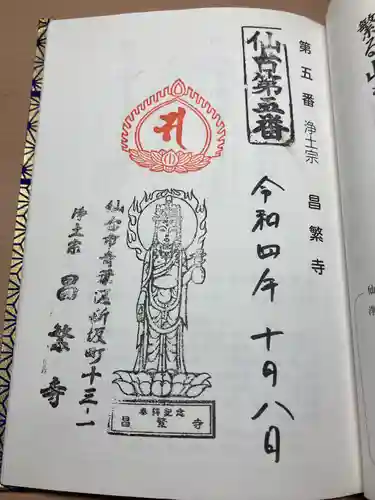 第五番 浄土宗 昌繁寺
仙台第五番
令和四年 十月八日
仙台市青葉区新坂町十三-一
浄土宗 昌繁寺
奉拝記念
昌繁寺